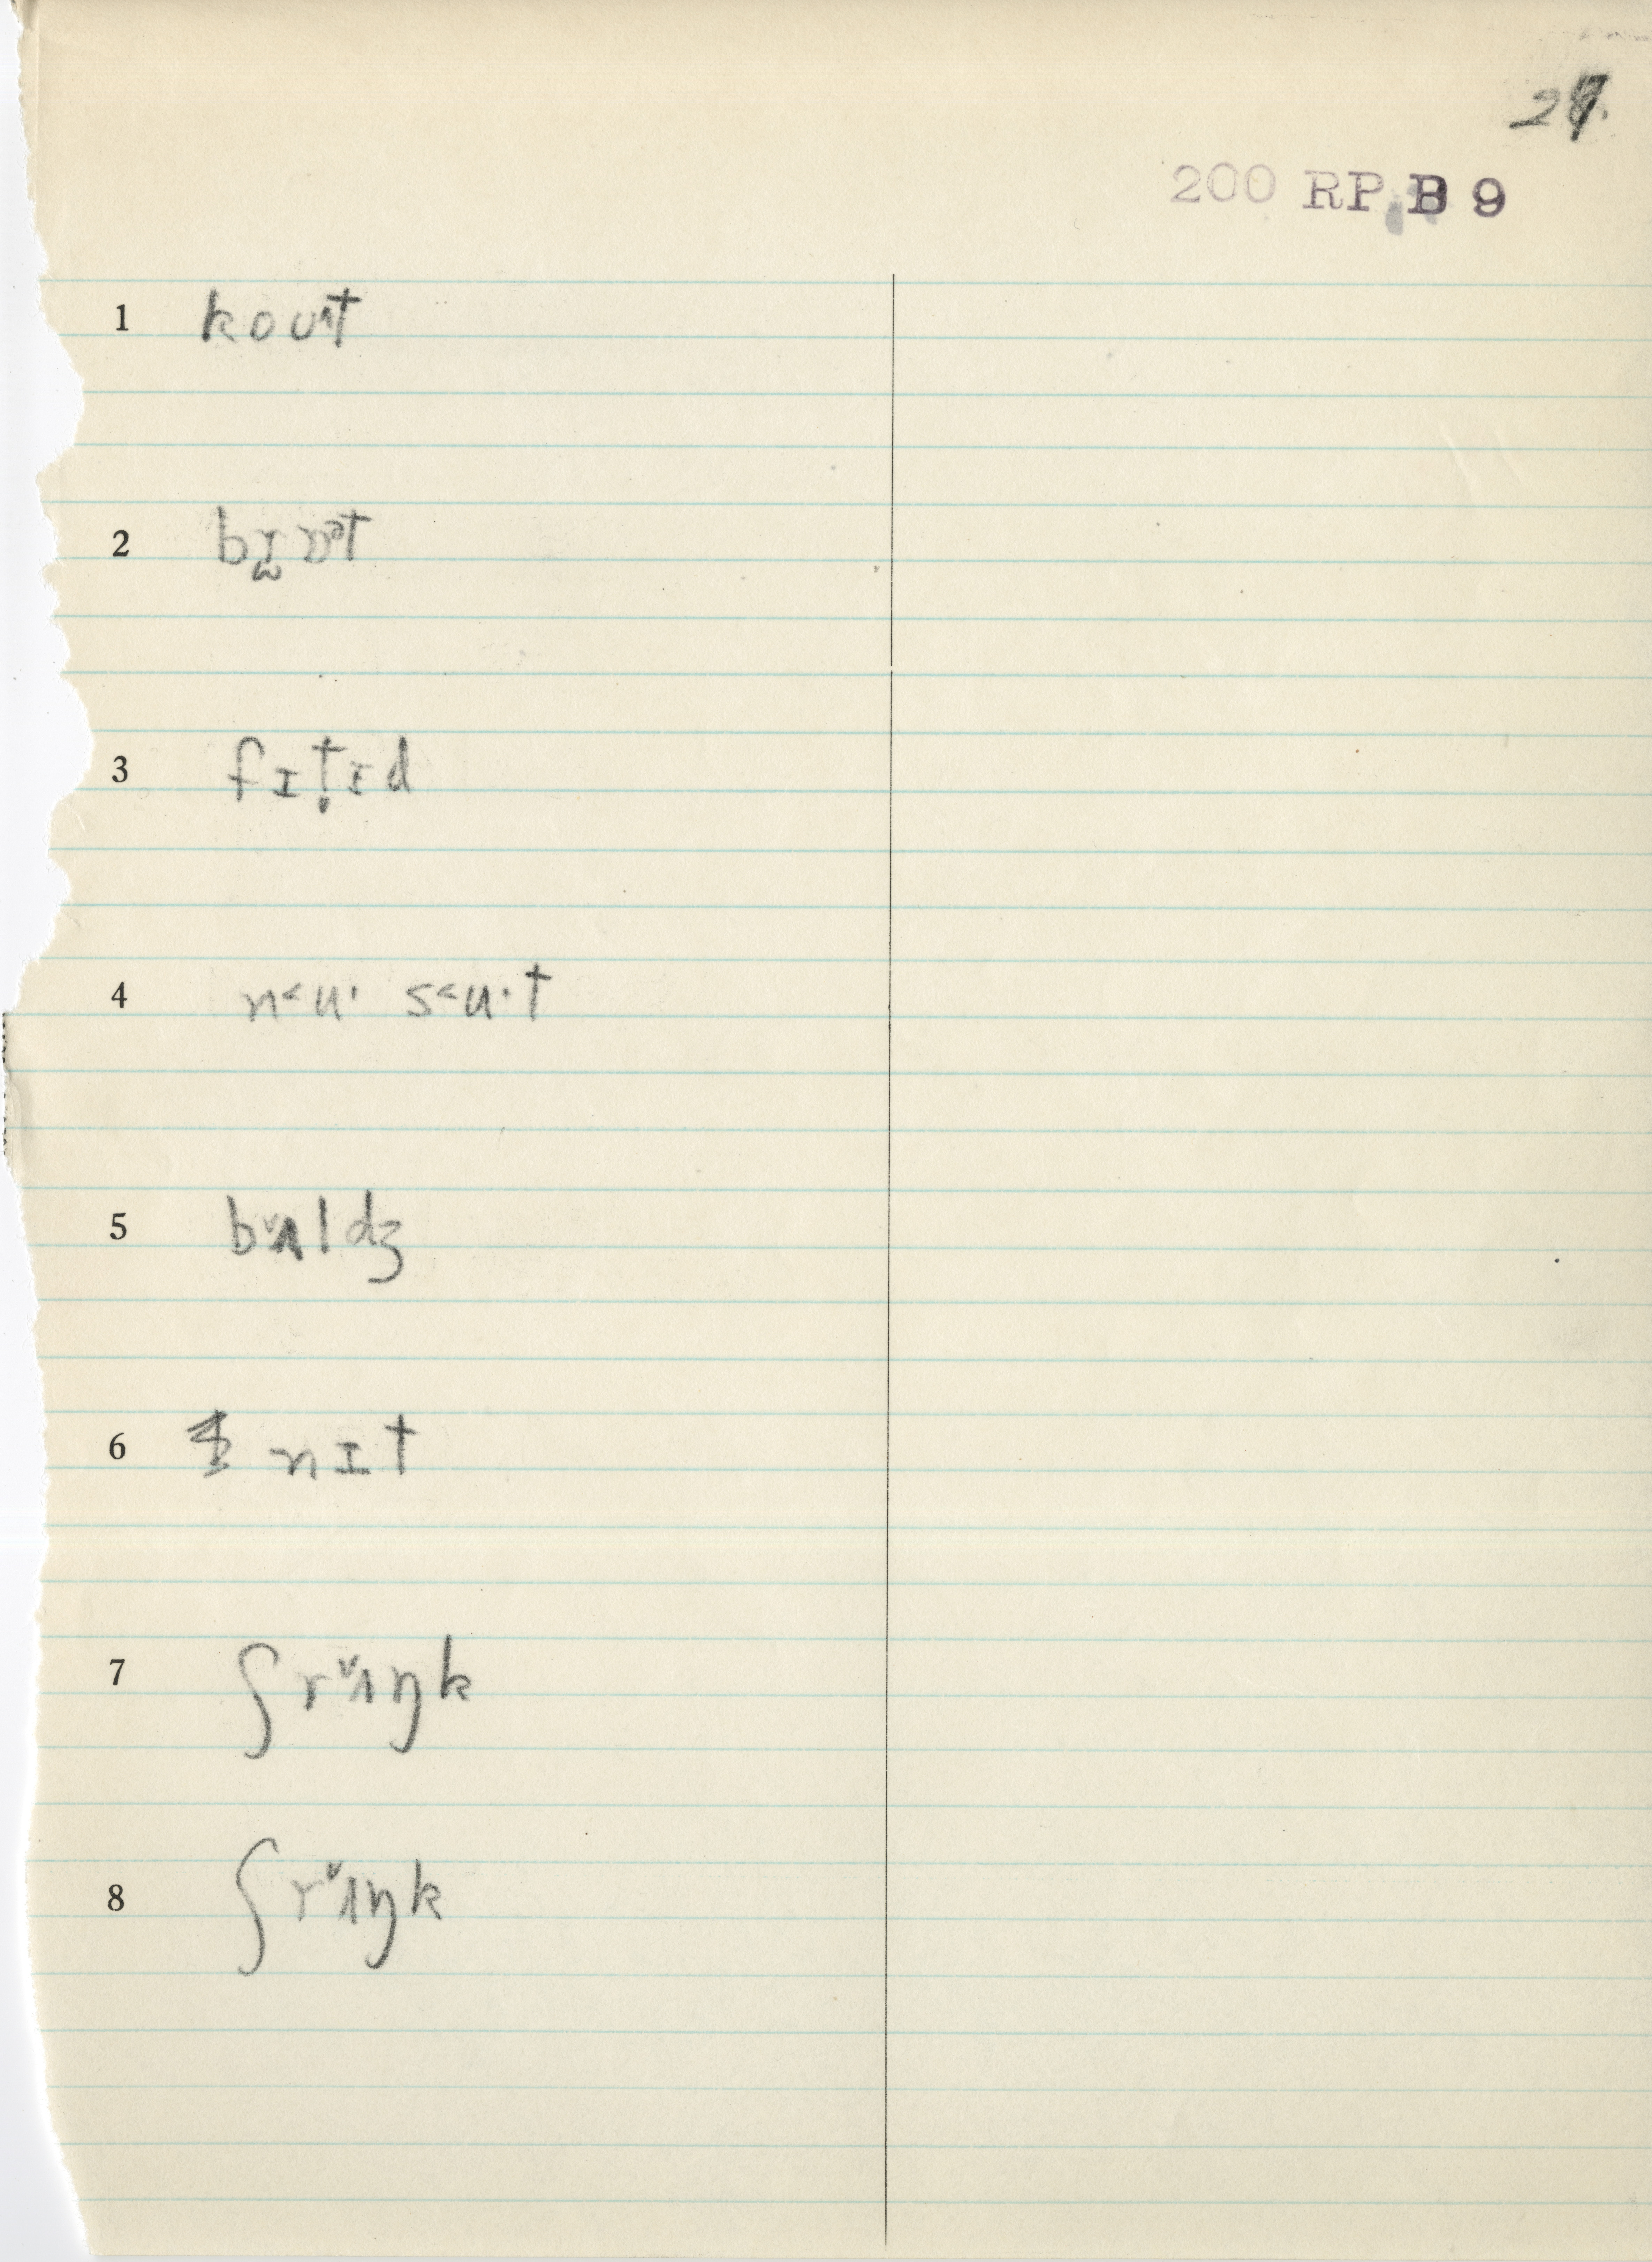 200 RP B 9
1 koʊt
3 fɪt̬ɪd
4 n˂u· s˂u·t
5 b˅ʌldʒ
6 nɪt
7 ʃr˅ʌŋk
8 ʃr˅ʌŋk